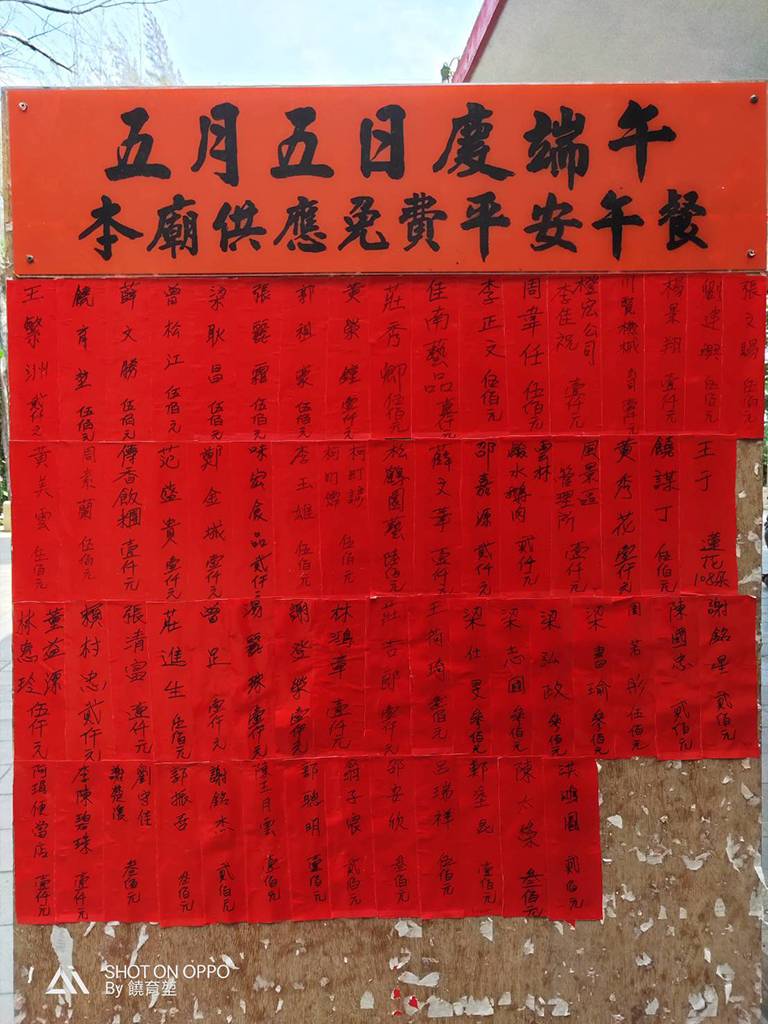 五月五日慶端午
本廟供應免費平安午餐
張文賜 伍佰元
劉建興 伍佰元
楊景翔 壹仟元
川賢機械
橙宏公司
李佳祝 壹仟元
周韋任 伍佰元
李正文 伍佰元
佳南藝品 壹仟元
莊秀卿 伍佰元
黃榮鐘 壹仟元
郭祖豪 伍佰元
張麗霜 伍佰元
梁耿昌 伍佰元
曾松江 伍佰元
薛文勝 伍佰元
饒育堃 伍佰元
王繁洲
王于 蓮花108朵
饒謀丁 伍佰元
黃秀花 壹仟元
風景區
管理所 壹仟元
雲林
鹹水鵝肉 貳仟元
邵嘉源 貳仟元
薛文華 壹仟元
松鶴園藝 陸佰元
伍佰元
李玉雄 伍佰元
味宏食品 貳仟元
鄭金城 壹仟元
范盛貴 壹仟元
傳香飯糰 壹仟元
周素蘭 伍佰元
黃美雲 伍佰元
謝銘星 貳佰元
陳國忠 貳佰元
周若彤 伍佰元
梁書瑜 叁佰元
梁弘政 叁佰元
梁志國 叁佰元
梁仕旻 叁佰元
王筠琦 壹佰元
莊吉郎 壹仟元
林鴻華 壹仟元
謝登榮 壹仟元
湯麗珠 壹仟元
曾足 壹仟元
莊進生 伍佰元
張清富 壹仟元
賴村忠 貳仟元
董益源
林惠玲 伍仟元
洪鴻圖 貳佰元
陳太榮 叁佰元
郭坤昆 壹佰元
呂瑞祥 伍佰元
邵安欣 叁佰元
翁子宸 貳佰元
郭聰明 壹佰元
陳王月雲 壹佰元
謝銘杰 貳佰元
郭振吞 叁佰元
劉守佳
謝楚俊 叁佰元
莊陳碧珠 壹仟元
阿瑱便當店 壹仟元
SHOT ON OPPO
By 饒育堃